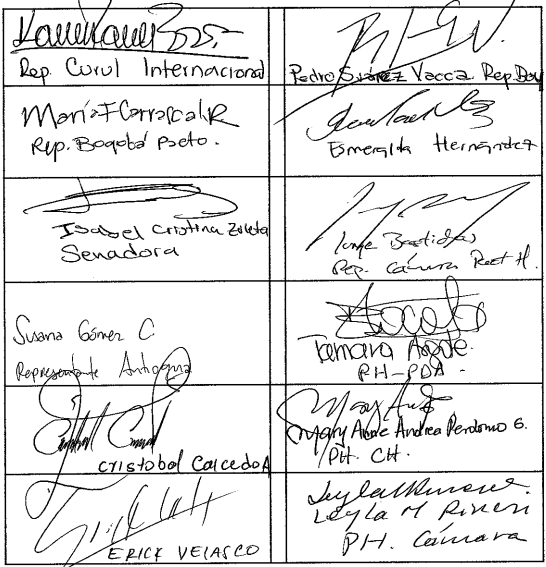 Rep. Curul Internacional
Pedro Suárez Vacca Rep. Boy
María F Carrascal R
Rep. Bogotá Pacto.
Esmeralda Hernández
Isabel Cristina Zuleta
Senadora
Jorge Bastidas
Rep. Cámara Pacto H.
Susana Gómez C.
Representante Antioquia
Tamara Argote
PH-PDA
Cristobal Caicedo A
Mary Anne Andrea Perdomo G.
PH. CH.
ERICK VELASCO
Leyla M Rincon
PH. Cámara